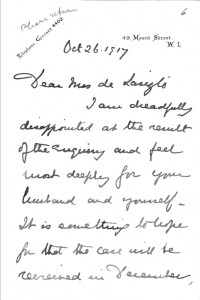 6
Telephone, Gerrard
49, Mount Street,
W. 1.
Oct 26. 1917
Dear Mrs de Laszlo
I am dreadfully
disappointed at the result
of the enquiry and feel
most deeply for your
husband and yourself—
It is something to hope
for that the case will be
reviewed in December,